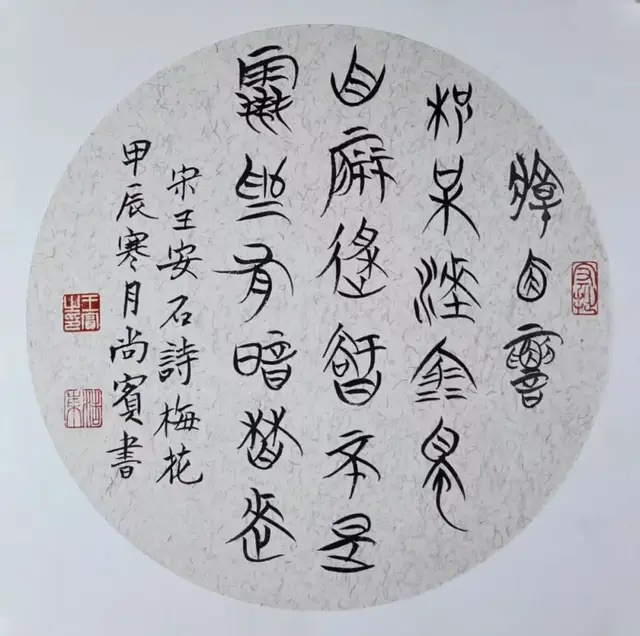 牆角數
枝梅凌寒獨
自開遙知不是
雪為有暗香來
宋王安石詩梅花
甲辰寒月尚賓書